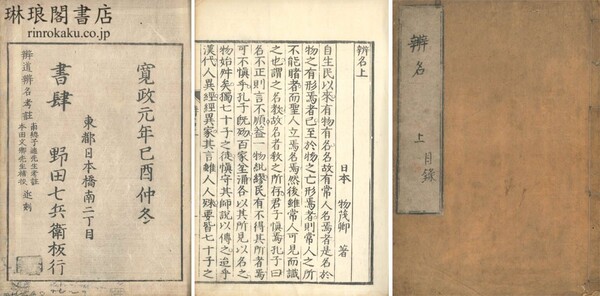 琳琅閣書店
rinrokaku.co.jp
寛政元年己酉仲冬
東都日本橋南二丁目
書肆 野田七兵衛板行
辨道辨名考註
近刻
辨名上
日本 物茂卿 著
自生民以來有物有名名故有常人名焉者是名於
物之有形焉者已至於物之亡形焉者則常人之所
不能睹者而聖人立焉名焉然後雖常人可見而識
之也謂之名教故名者教之所存君子愼焉孔子曰
名不正則言不順蓋一物紕繆民有不得其所者焉
可不愼乎孔子既歿百家坌涌各以其所見以名之
物始舛矣獨七十子之徒愼守其師說以傳之迨乎
漢代人異經經異家其言雖人人殊要皆七十子之
辨名 上
目錄